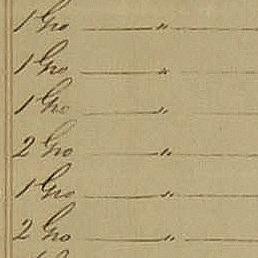 1 Gro — " —
1 Gro — " —
1 Gro — "
2 Gro — " —
1 Gro — " —
2 Gro — " —